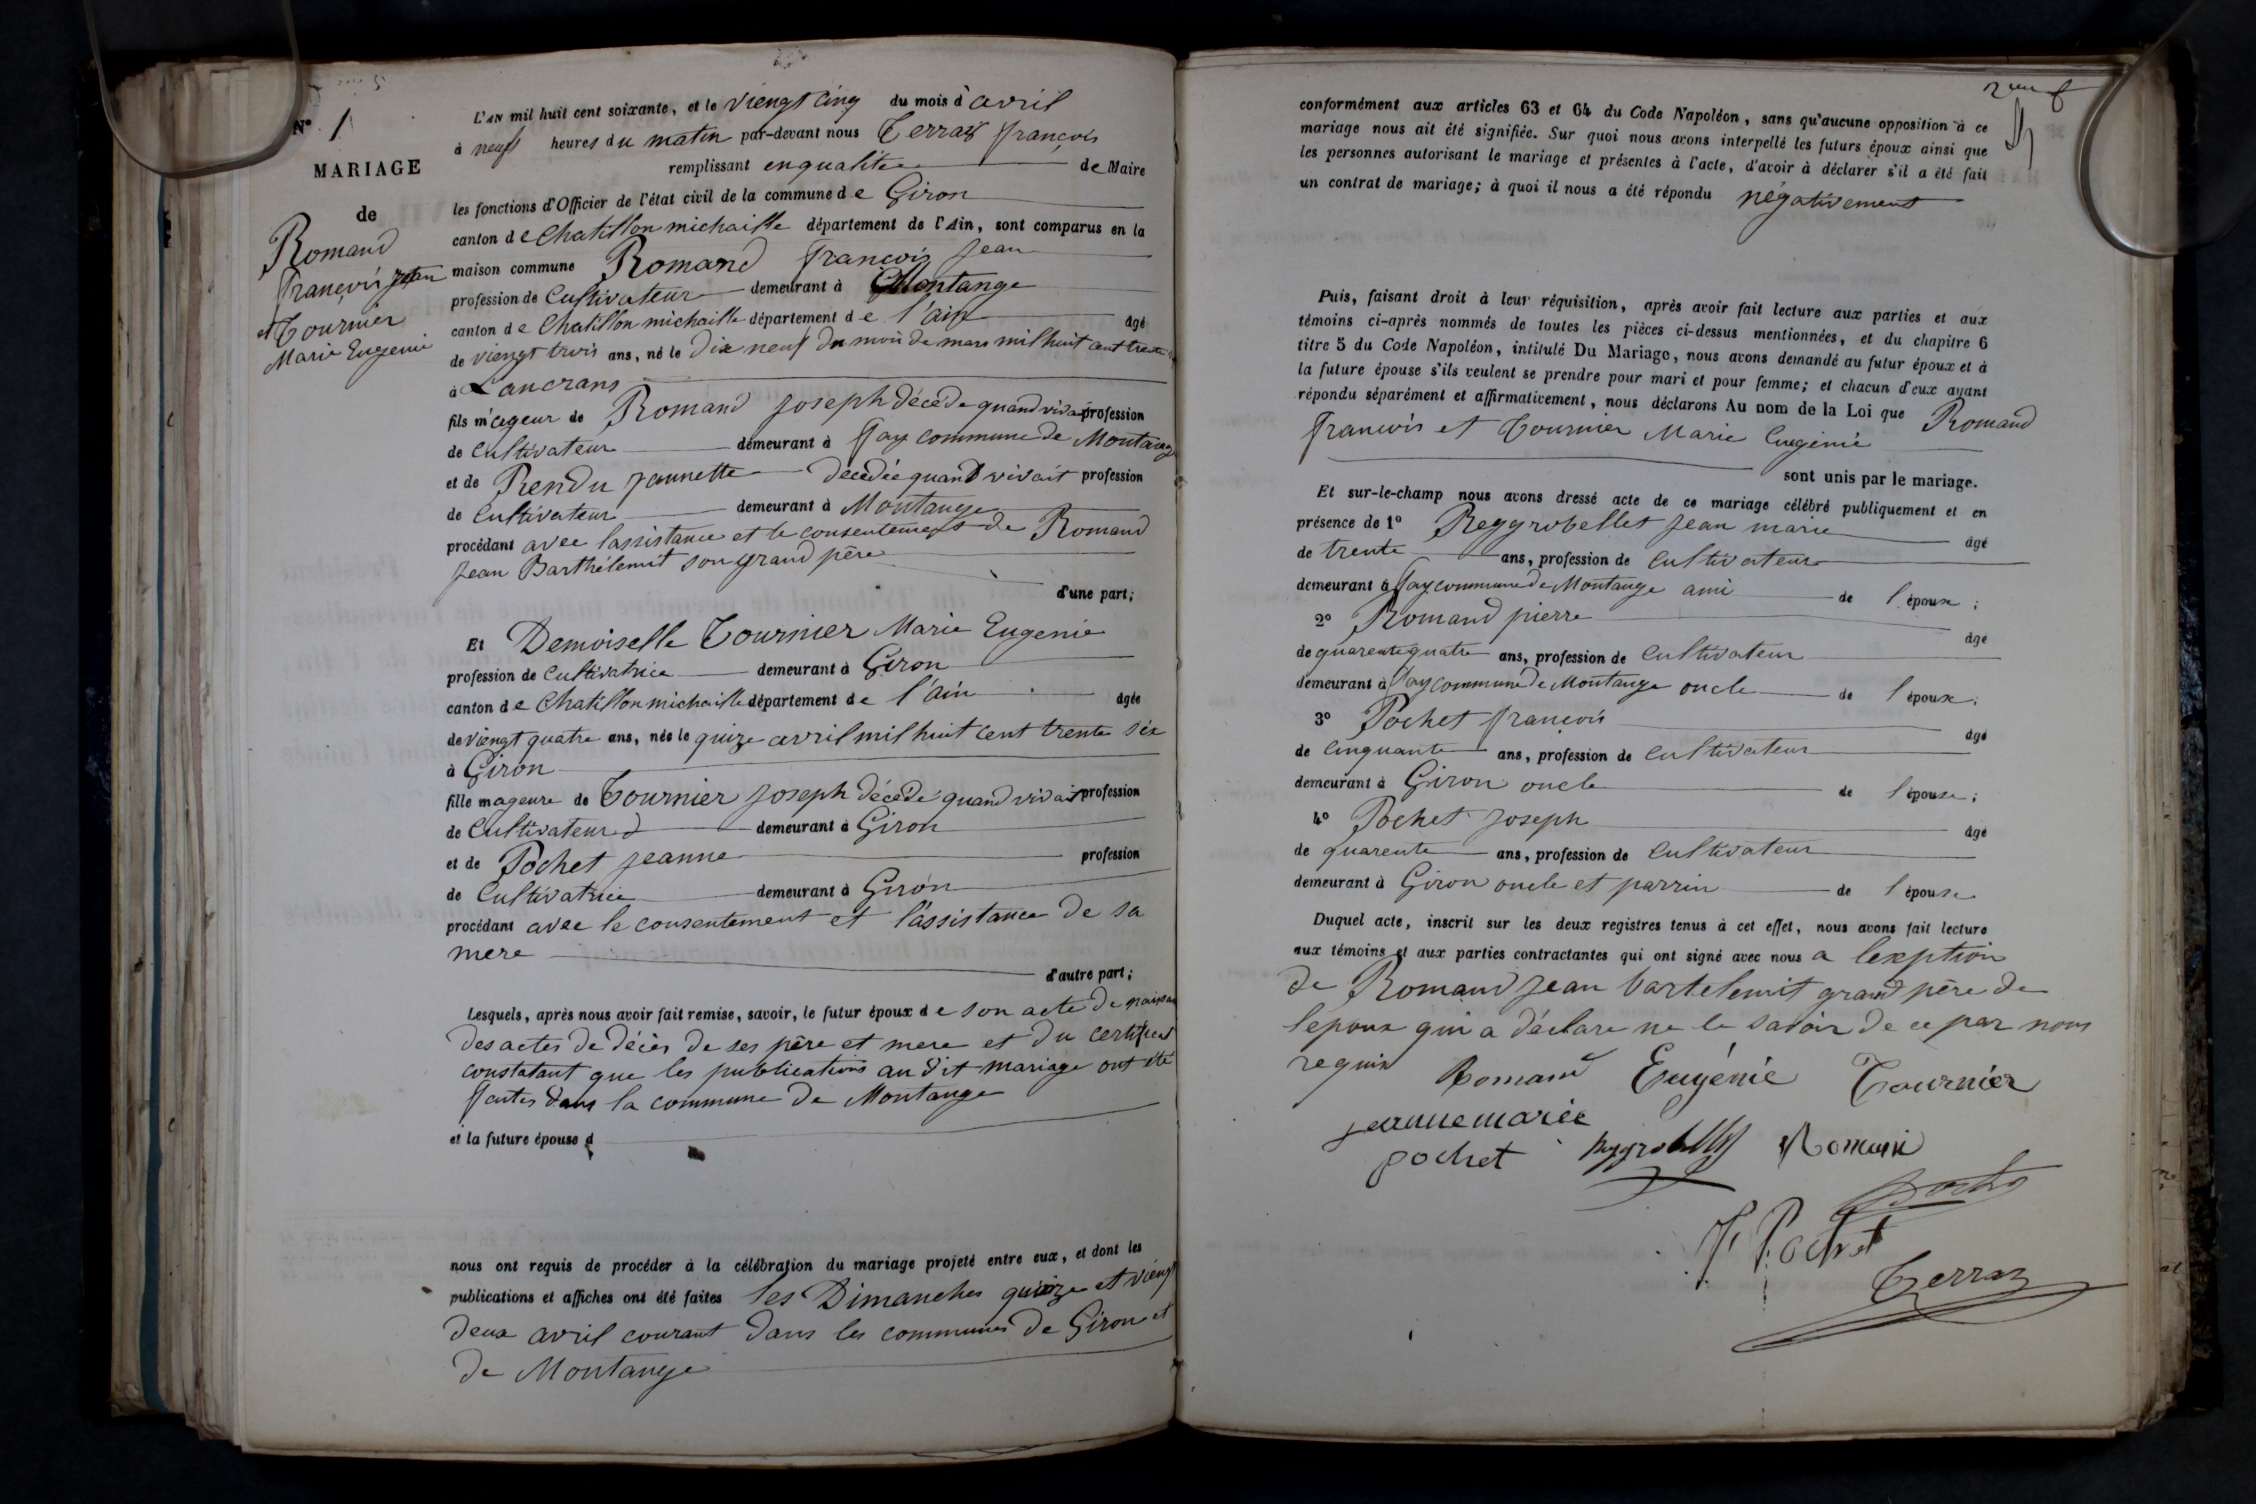 N° 1
MARIAGE
de
Romand
françois jean
et Tournier
Marie Eugenie
L'AN mil huit cent soixante, et le viengt cinq du mois d'avril
à neuf heures du matin par-devant nous Terraz françois
remplissant en qualité de Maire
les fonctions d'Officier de l'état civil de la commune de Giron
canton de Chatillon michaille département de l'Ain, sont comparus en la
maison commune Romand françois jean
profession de Cultivateur demeurant à Montange
canton de Chatillon michaille département de l'ain âgé
de viengt trois ans, né le dix neuf du mois de mars mil huit cent trente
à Lancrans
fils mageur de Romand joseph décédé quand vivait profession
de Cultivateur demeurant à fay commune de Montange
et de Rendu jannette décédée quand vivait profession
de Cultivateur demeurant à Montange
procédant avec lassistance et le consentement de Romand
jean Barthélemit son grand père
d'une part;
Et Demoiselle Tournier Marie Eugenie
profession de Cultivatrice demeurant à Giron
canton de Chatillon michaille département de l'ain âgée
de viengt quatre ans, née le quize avril mil huit cent trente six
à Giron
fille mageure de Tournier joseph décédé quand vivait profession
de Cultivateur demeurant à Giron
et de Pochet jeanne profession
de Cultivatrice demeurant à Giron
procédant avec le consentement et l'assistance de sa
mere
d'autre part;
Lesquels, après nous avoir fait remise, savoir, le futur époux de son acte de
des actes de décès de ses père et mere et du certificat
constatant que les publications au dit mariage ont été
faites dans la commune de Montange
et la future épouse d
nous ont requis de procéder à la célébration du mariage projeté entre eux, et dont les
publications et affiches ont été faites les Dimanches quinze et viengt
deux avril courant dans les communes de Giron et
de Montange
conformément aux articles 63 et 64 du Code Napoléon, sans qu'aucune opposition à ce
mariage nous ait été signifiée. Sur quoi nous avons interpellé les futurs époux ainsi que
les personnes autorisant le mariage et présentes à l'acte, d'avoir à déclarer s'il a été fait
un contrat de mariage; à quoi il nous a été répondu négativement
Puis, faisant droit à leur réquisition, après avoir fait lecture aux parties et aux
témoins ci-après nommés de toutes les pièces ci-dessus mentionnées, et du chapitre 6
titre 5 du Code Napoléon, intitulé Du Mariage, nous avons demandé au futur époux et à
la future épouse s'ils veulent se prendre pour mari et pour femme; et chacun d'eux ayant
répondu séparément et affirmativement, nous déclarons Au nom de la Loi que Romand
françois et Tournier Marie Eugénie
sont unis par le mariage.
Et sur-le-champ nous avons dressé acte de ce mariage célébré publiquement et en
présence de 1° Reygrobellet jean marie âgé
de trente ans, profession de Cultivateur
demeurant à fay commune de Montange ami de l'époux;
2° Romand pierre âgé
de quarente quatre ans, profession de Cultivateur
demeurant à fay commune de Montange oncle de l'époux;
3° Pochet françois âgé
de cinquante ans, profession de Cultivateur
demeurant à Giron oncle de l'épouse;
4° Pochet joseph âgé
de quarente ans, profession de Cultivateur
demeurant à Giron oncle et parrin de l'épouse
Duquel acte, inscrit sur les deux registres tenus à cet effet, nous avons fait lecture
aux témoins et aux parties contractantes qui ont signé avec nous a lexption
de Romand jean bartelemit grand père de
lepoux qui a déclare ne le savoir de ce par nous
requis
Romand Eugénie Tournier
jeannemariee
pochet Reygrobellet Romand
Pochet
f Pochet
Terraz